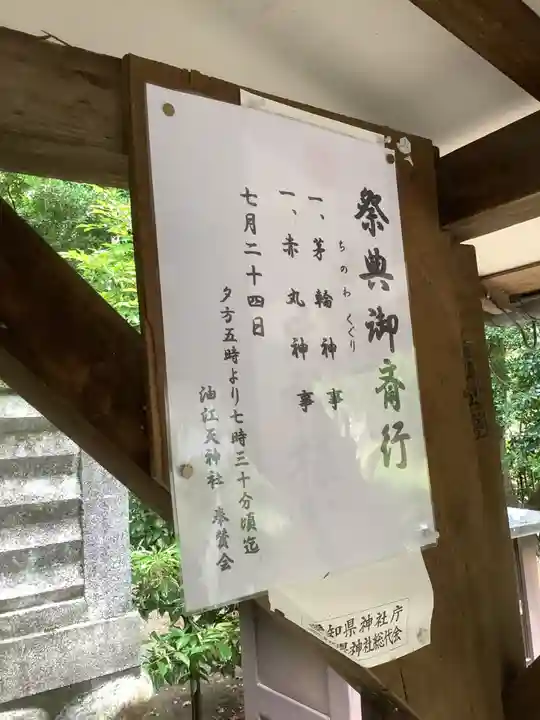 祭典御斎行
一、茅輪神事
ちのわくぐり
一、赤丸神事
七月二十四日
夕方五時より七時三十分頃迄
油江天神社 奉賛会
知県神社庁
県神社総代会